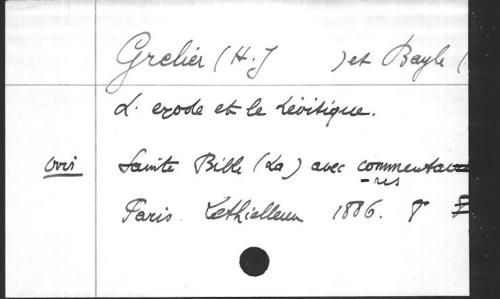 Grelier (H. J ) et Bayle (
L' exode et le Lévitique.
Voir Sainte Bible (La) avec commentai
-res
Paris. Lethielleux 1886. 8°